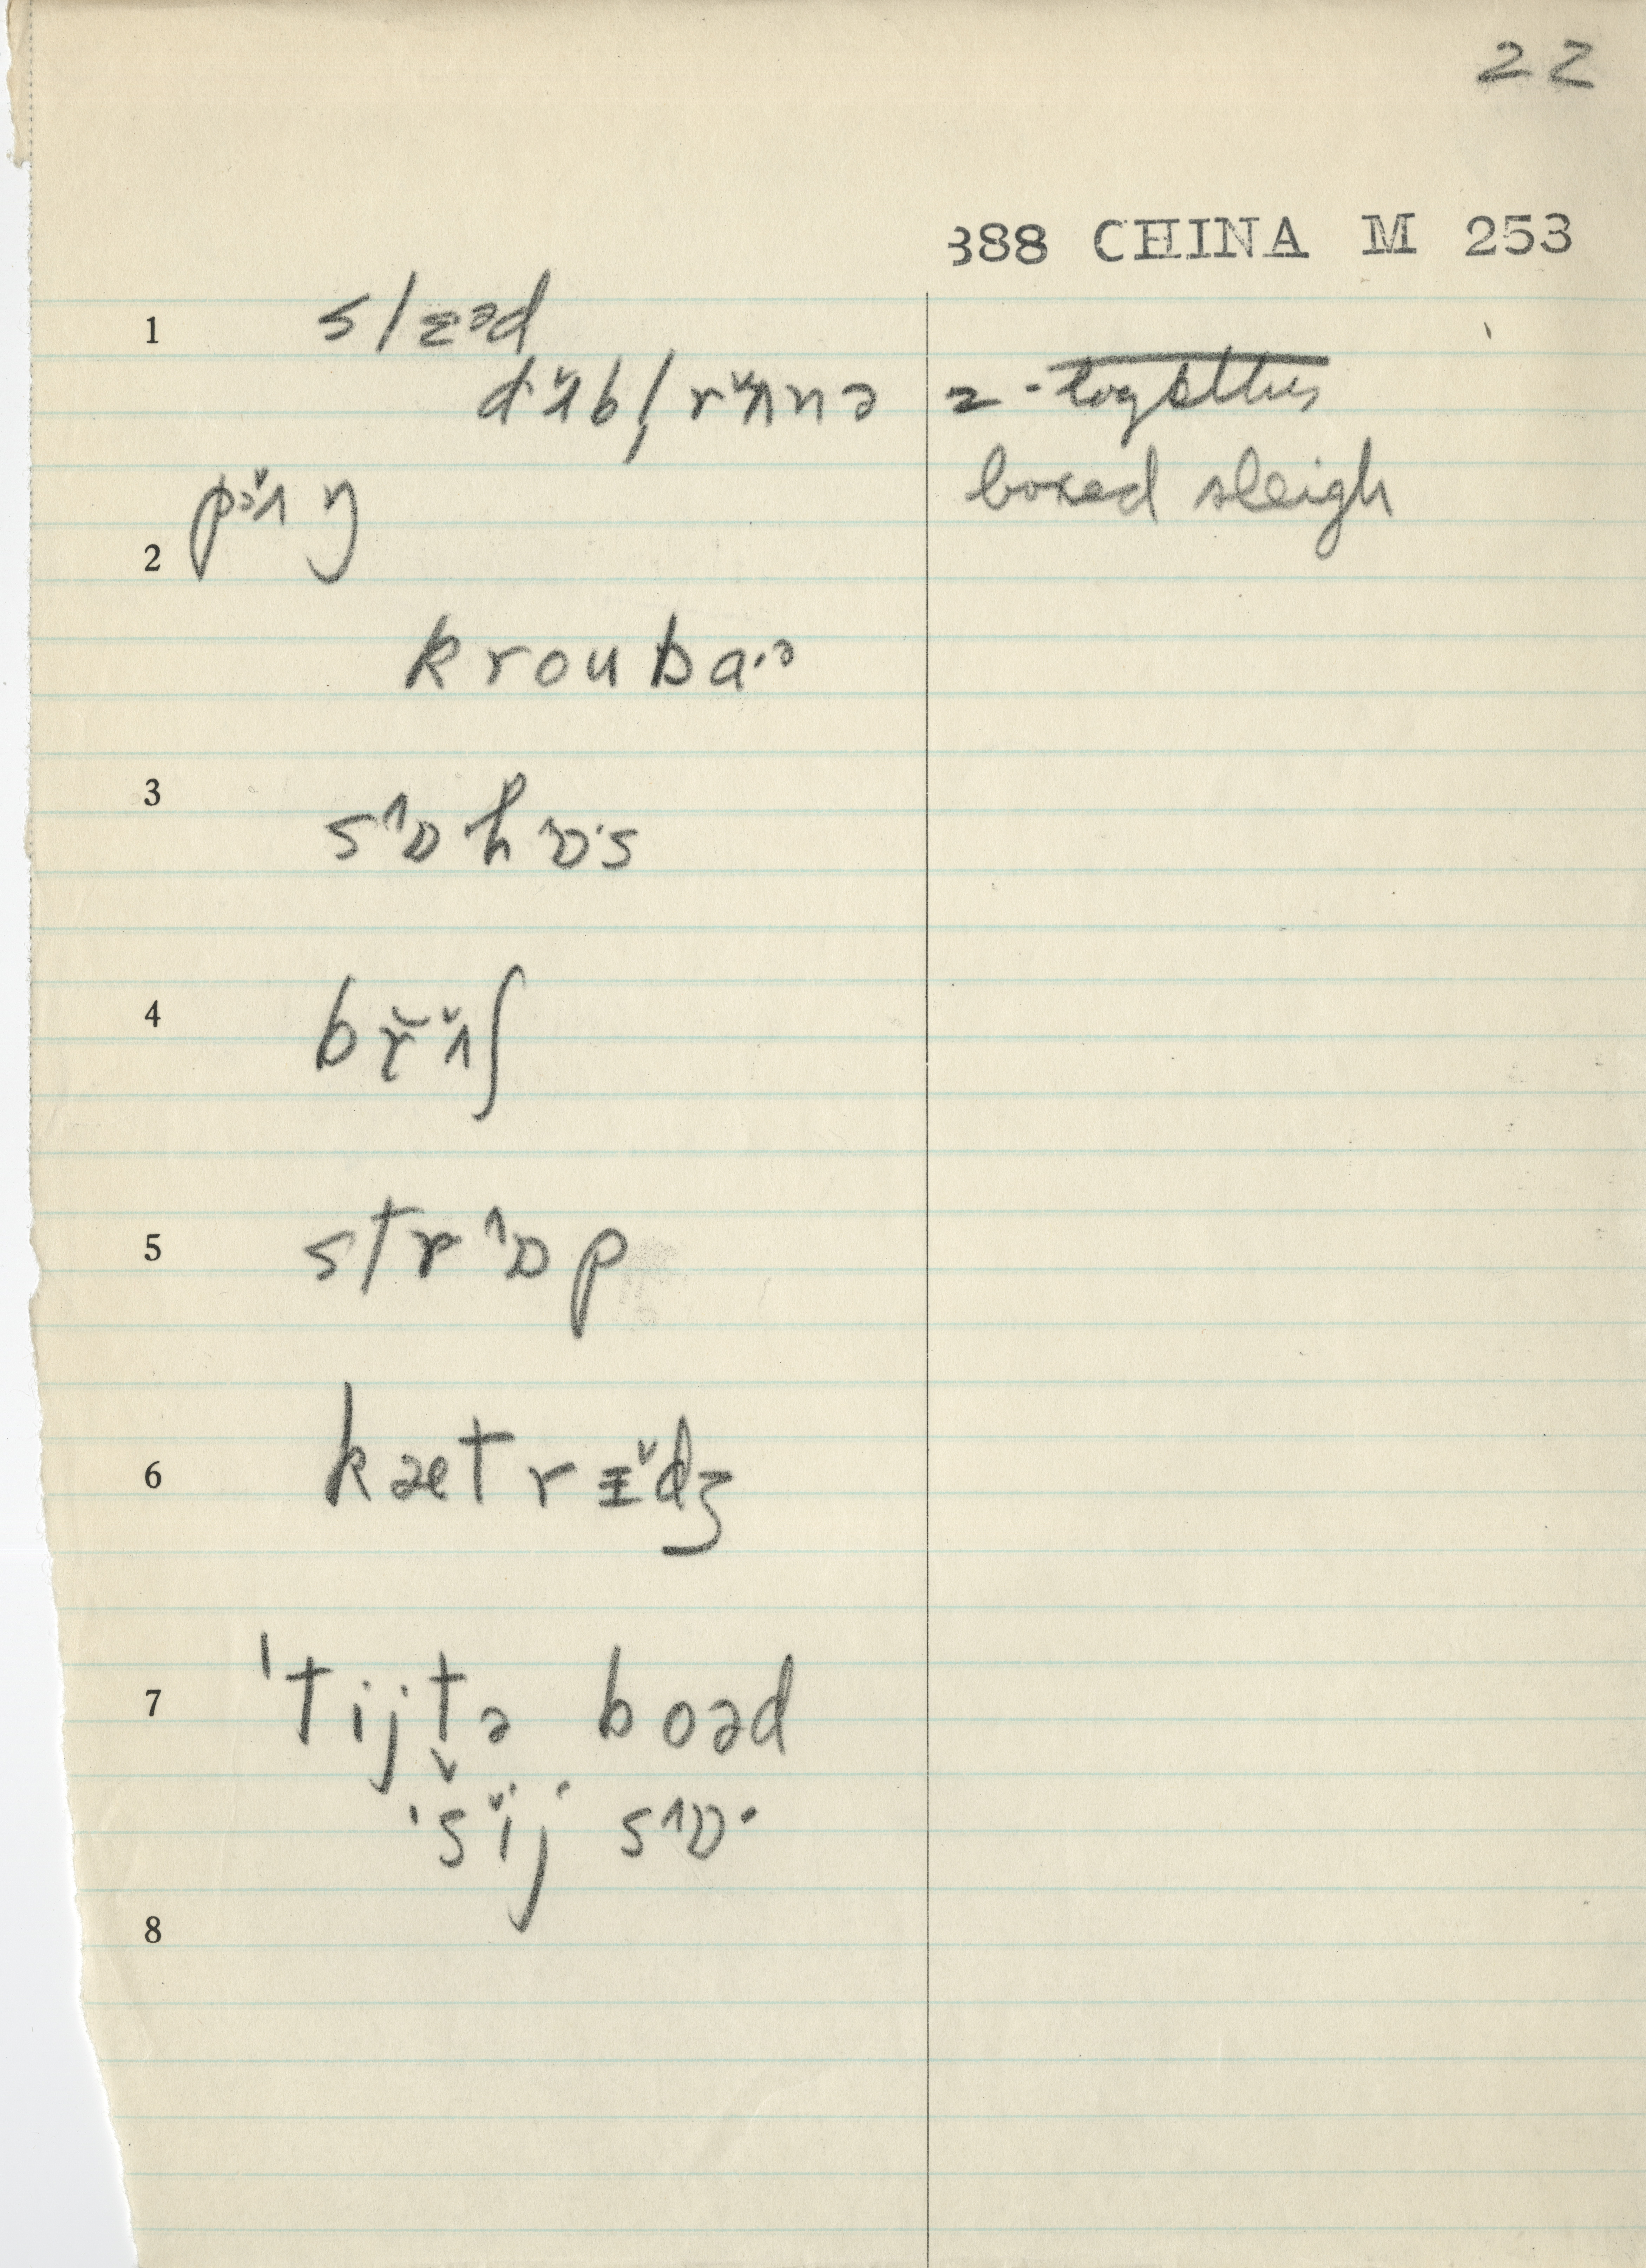 22
388 CHINA M 253
1 slæəd
dʌ̌bl̩ rʌ̌nə 2 - together
pʌ̌ŋ boxed sleigh
2
kroubɑ·ə
3 sɒhɒ·s
4 br̆ʌ̌ʃ
5 strɒp
6 kætrɪ̌dʒ
7 ˈtijt̬ə boəd
ˈsij sɒ·
8